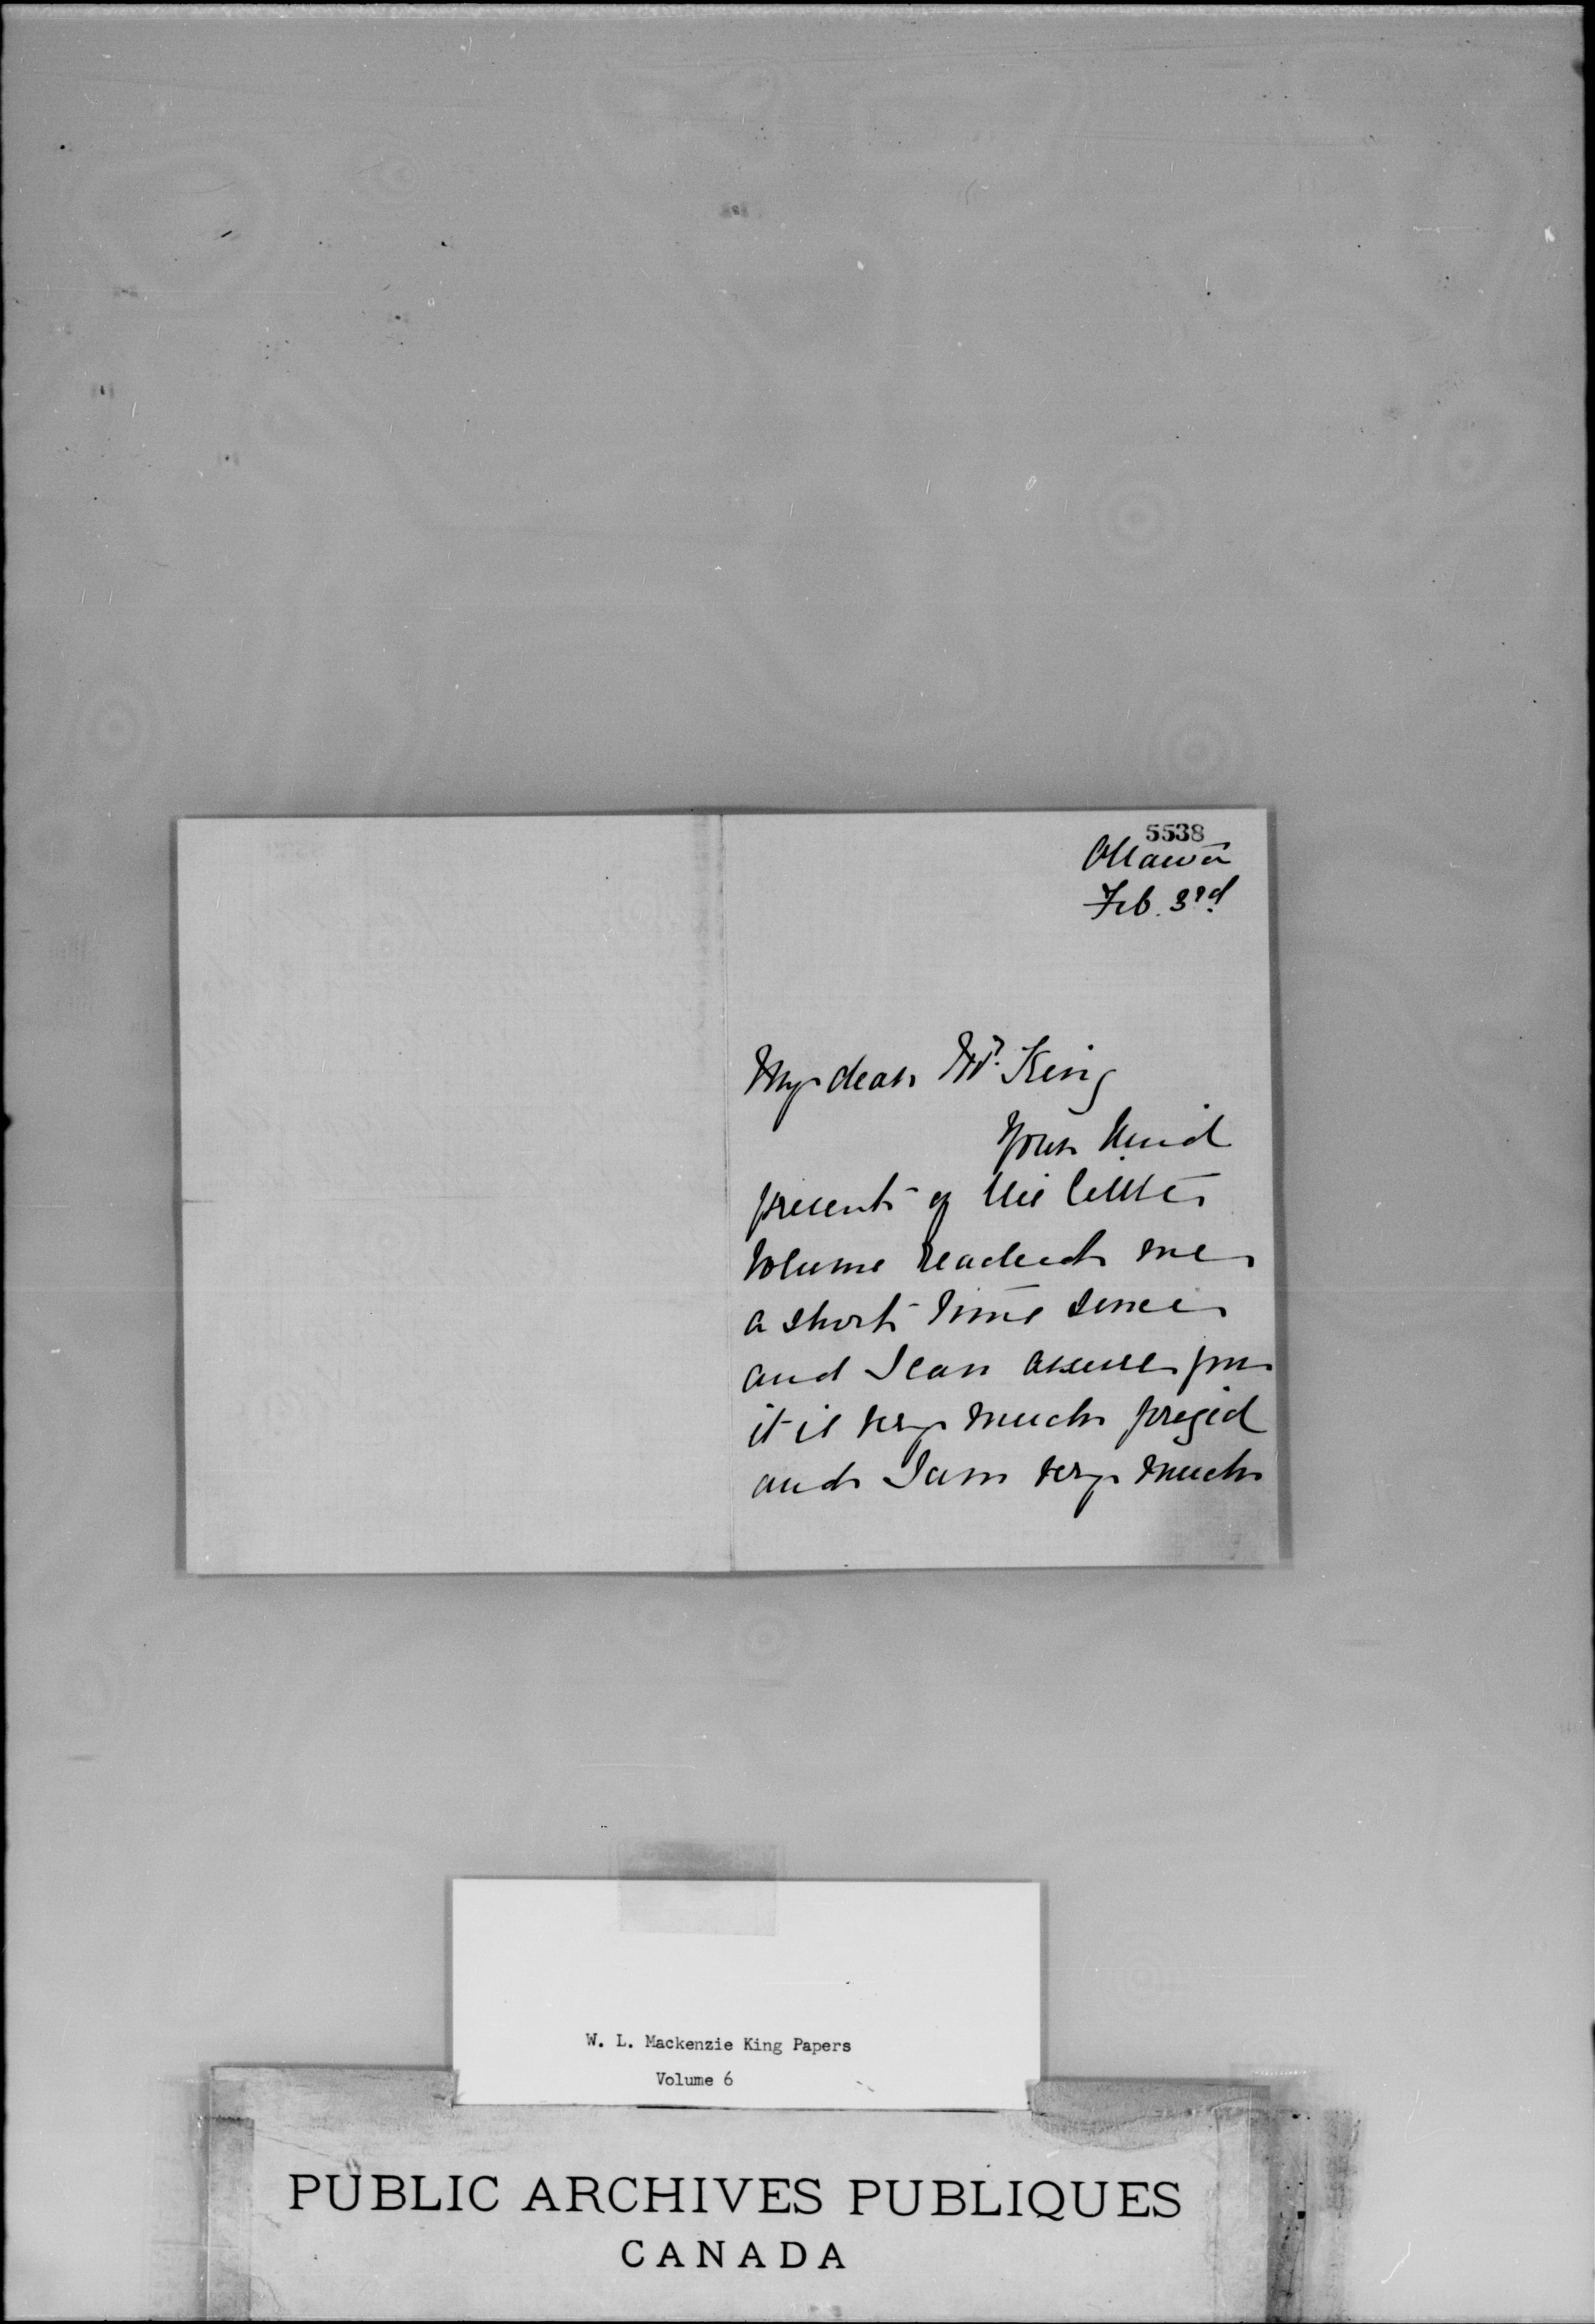 5538
Ottawa
Feb. 3rd
My dear Mr. King
Your kind
present of the little
volume reached me
a short time since
and I can assure you
it is very much prized
and I am very much
W. L. Mackenzie King Papers
Volume 6
PUBLIC ARCHIVES PUBLIQUES
CANADA